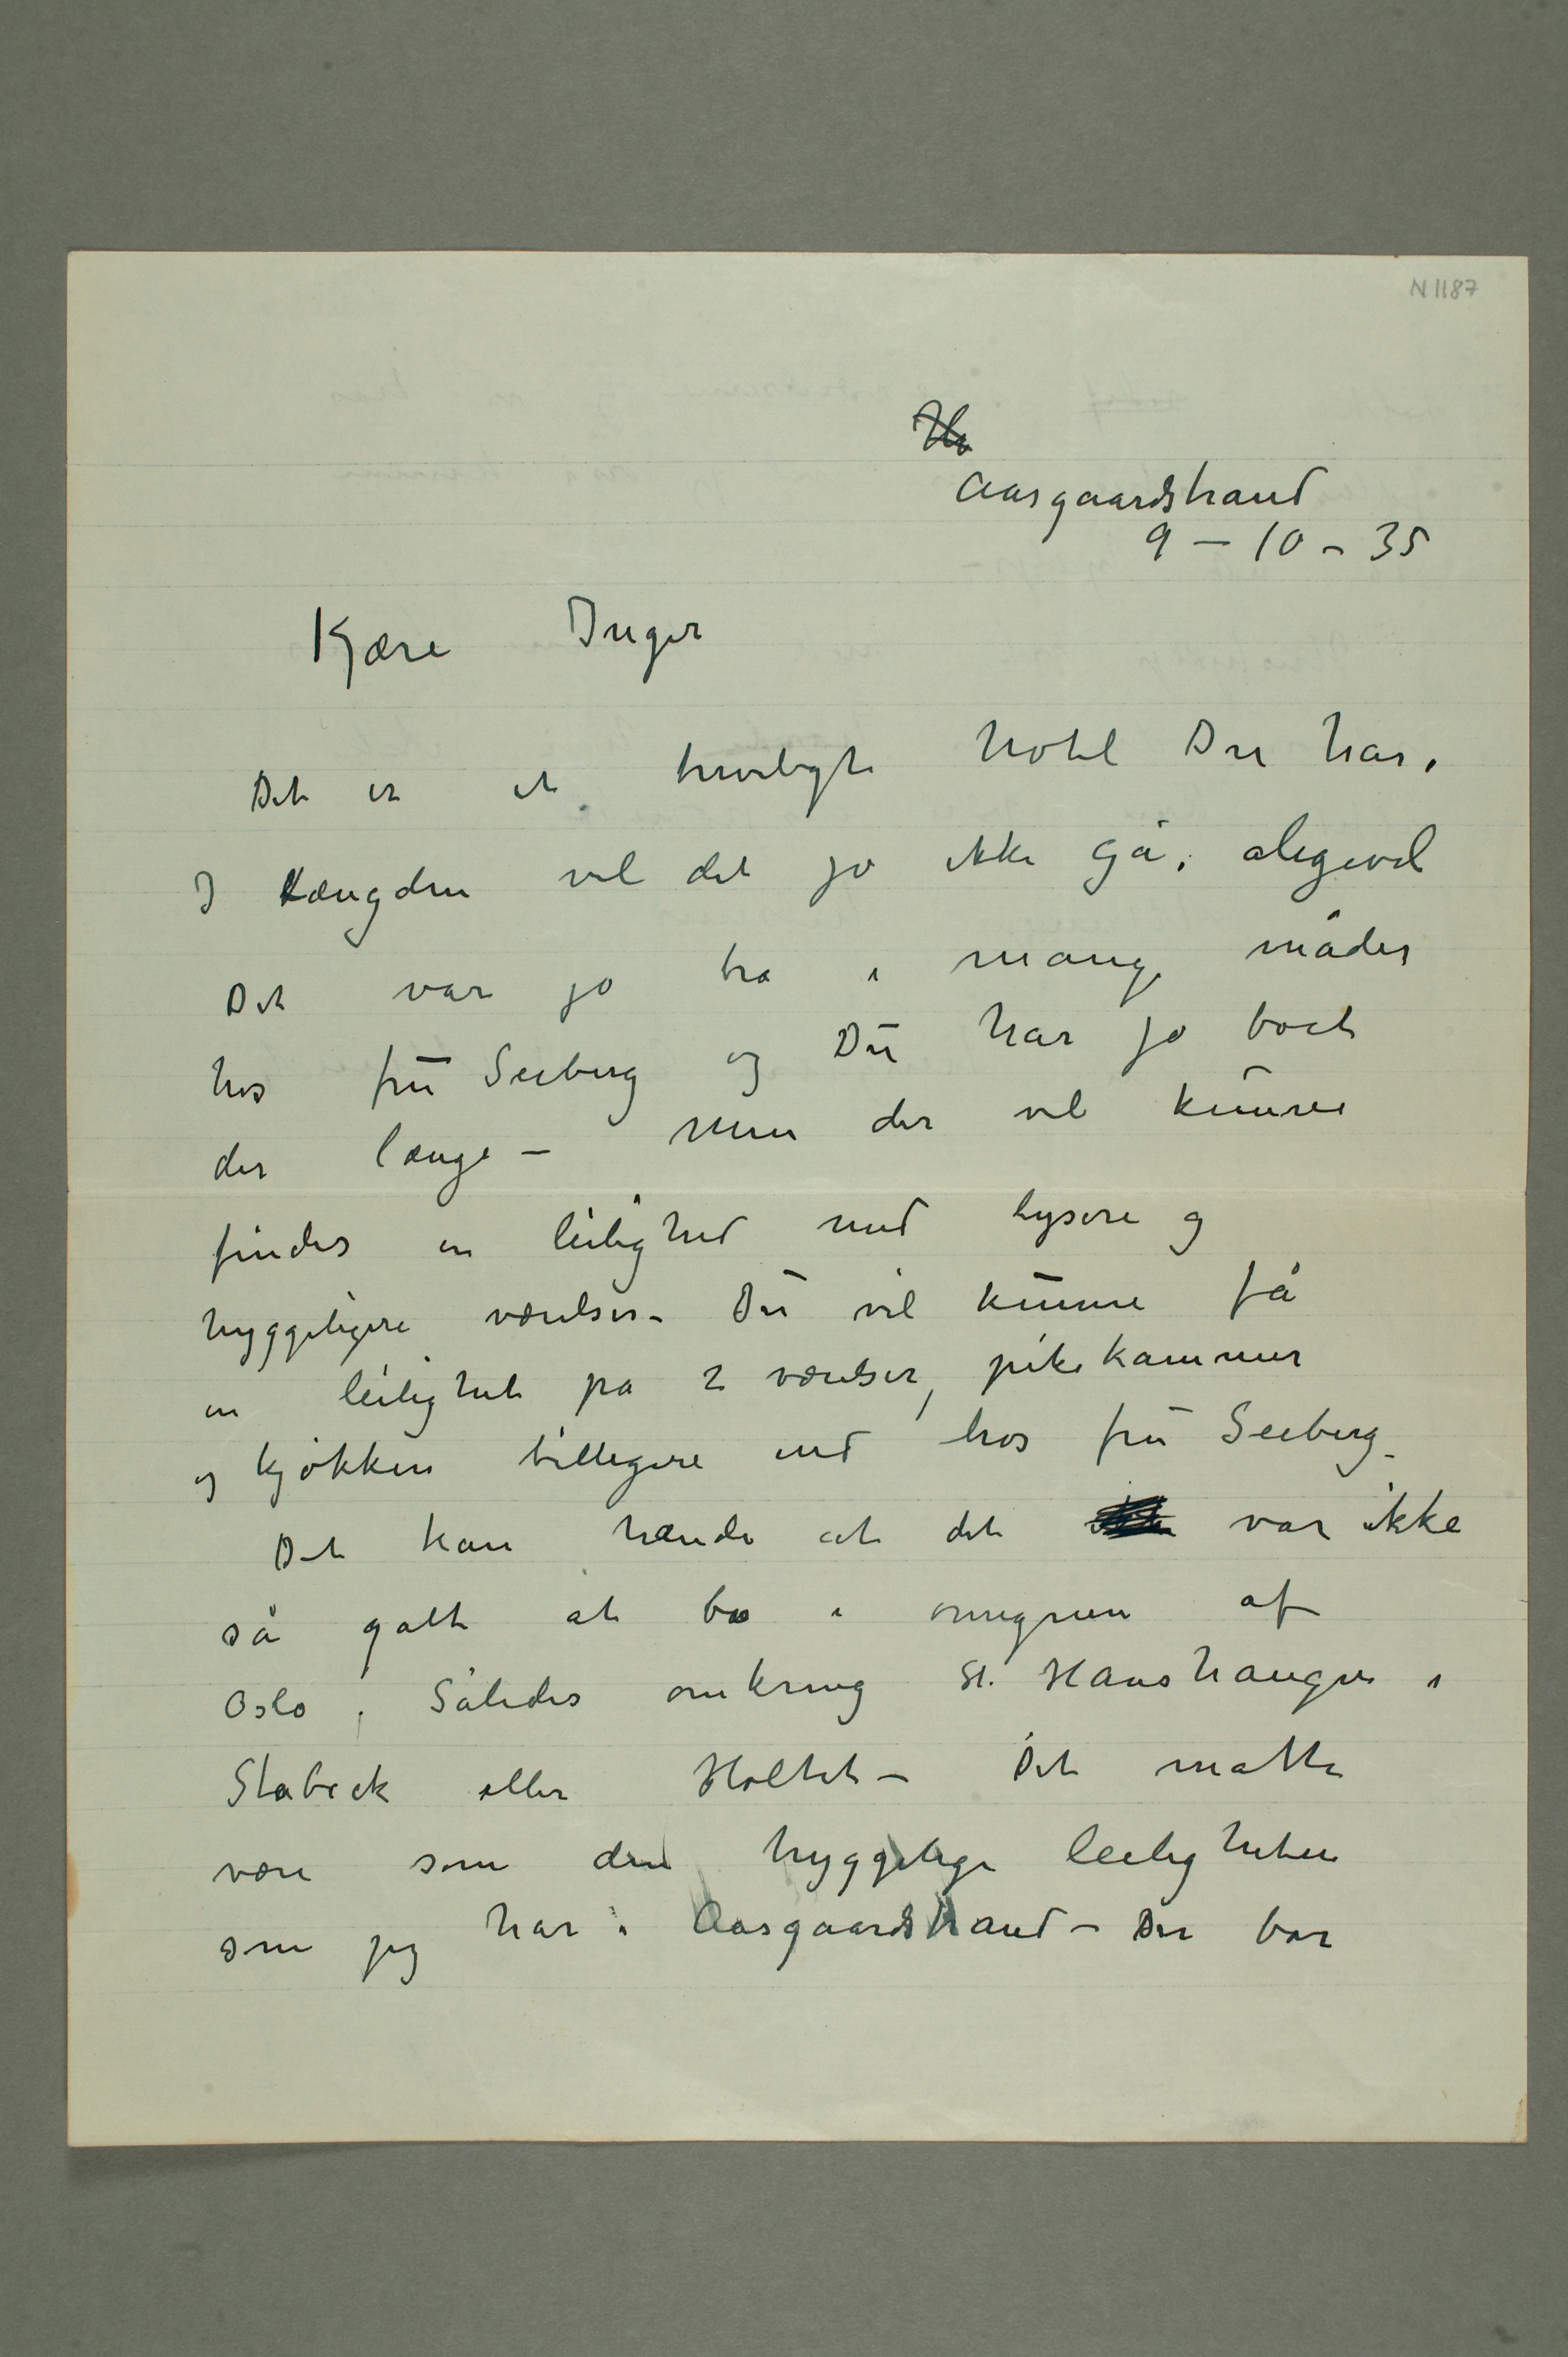 N 1187
Aasgaardstrand
9 – 10 – 35
Kjære Inger
Det er et hyveligt hotel Du har.
I længden vil det jo ikke gå. aligevel
Det var jo bra i mange måder
hos frū Seeberg og Dū har jo boet
der længe – Men der vil kūnne
findes en leilighed med lysere og
hyggeligere værelser – Dū vil kūnne få
en leilighet på 2 værelser, pikekammer
og kjøkken billigere end hos frū Seeberg –
Det kan hænde at det var ikke
så galt at bo i omegnen af
Oslo. Således omkring St. Hanshaugen i
Stabæk eller Holtet – Det måtte
være som den hyggelige leiligheten
som jeg har i Aasgaardstrand – Der bor